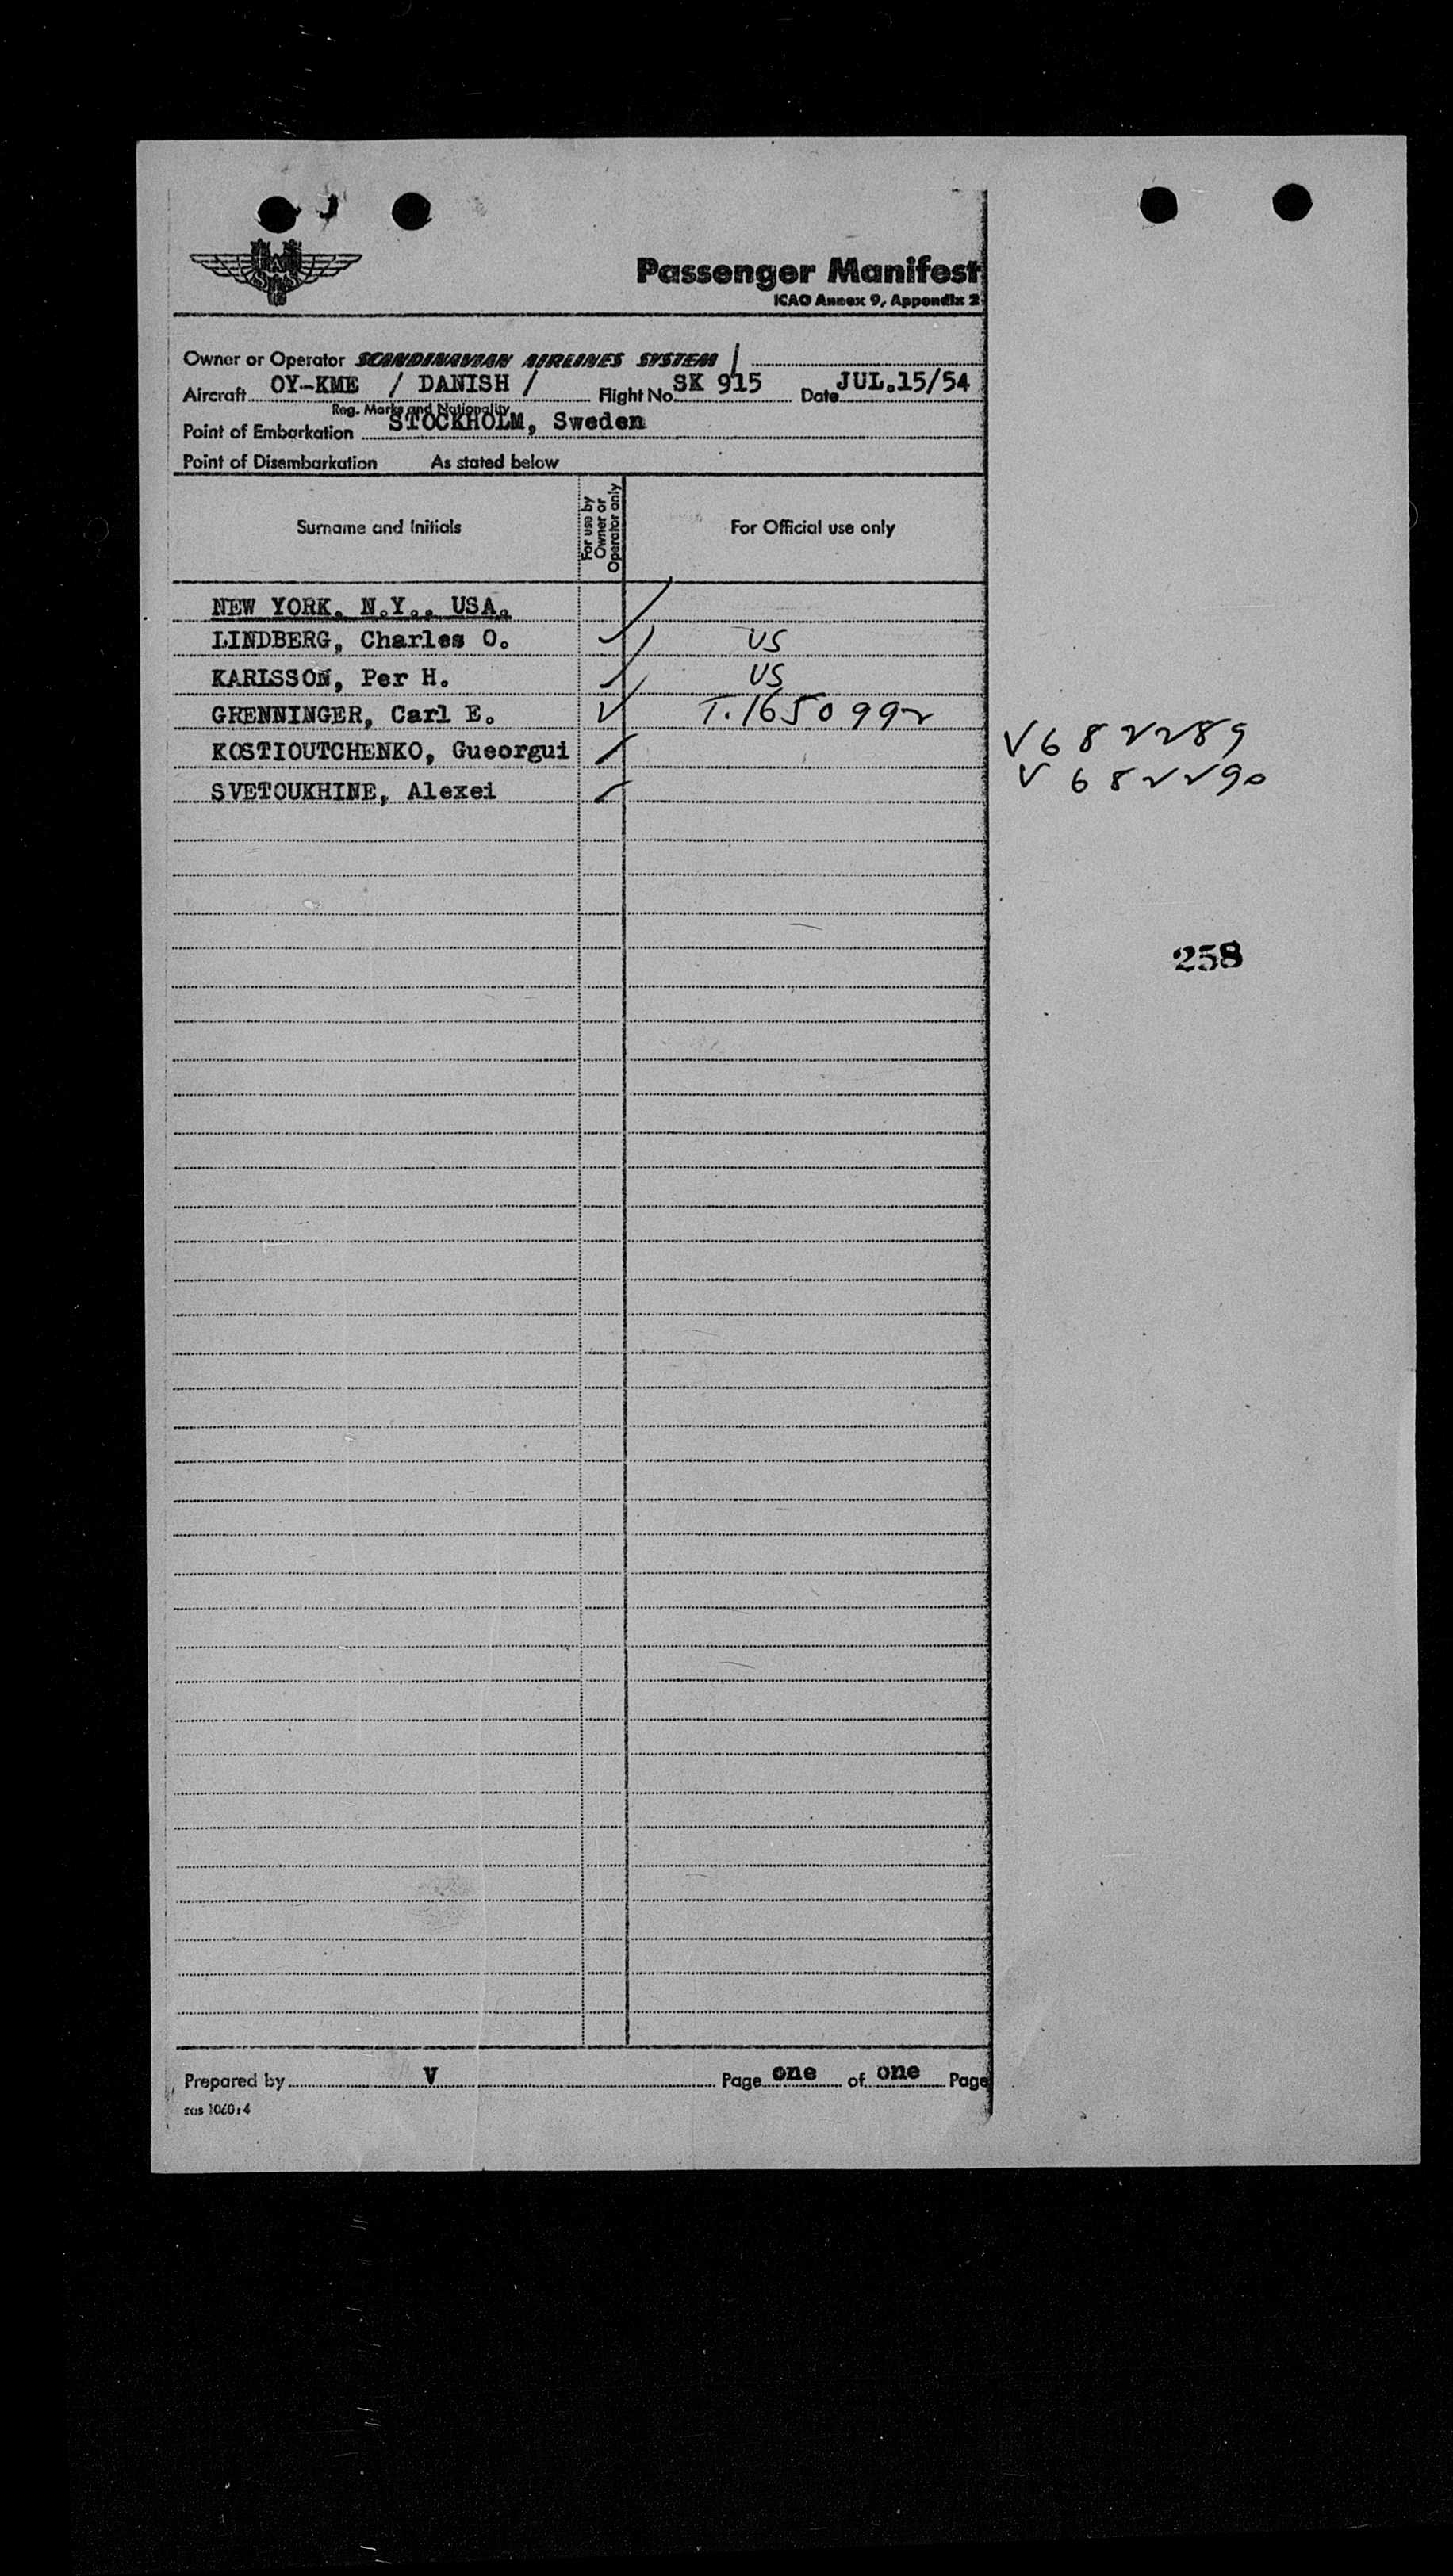 SAS
Passenger Manifest
ICAO Annex 9, Appendix 2
Owner or Operator SCANDINAVIAN AIRLINES SYSTEM /
Aircraft OY-KME / DANISH / Flight No. SK 915 Date JUL.15/54
Reg. Marks and Nationality
Point of Embarkation STOCKHOLM, Sweden
Point of Disembarkation As stated below
Surname and Initials For use by Owner or Operator only For Official use only
NEW YORK, N.Y., USA.
LINDBERG, Charles O. ✓ US
KARLSSON, Per H. ✓ US
GRENNINGER, Carl E. ✓ T.1650992
KOSTIOUTCHENKO, Gueorgui ✓ V682289
SVETOUKHINE, Alexei ✓ V682290
258
Prepared by V Page one of one Page
sas 1060:4